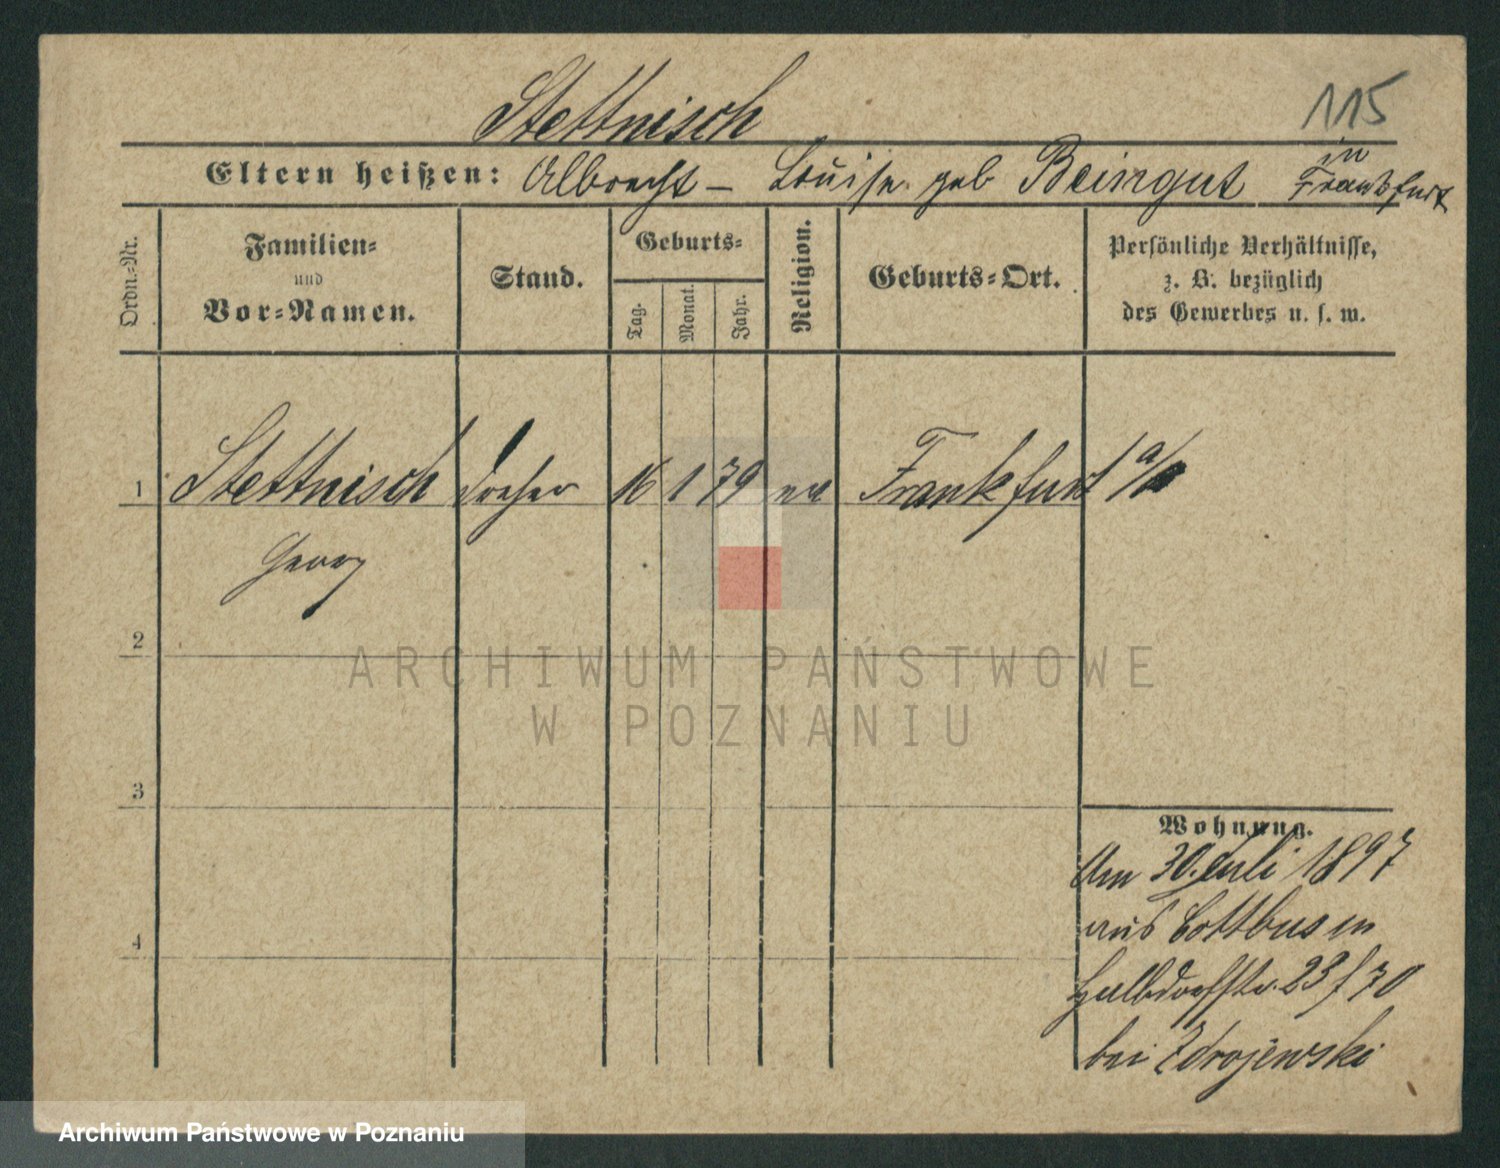 115
Stettnisch
Eltern heißen: Albrecht – Louise geb Beingut in Frankfurt
Ordn.=Nr.
Familien=
und
Vor=Namen.
Stand.
Geburts=
Tag.
Monat.
Jahr.
Religion.
Geburts=Ort.
Persönliche Verhältnisse,
z. B. bezüglich
des Gewerbes u. s. w.
1 Stettnisch Dreher 16 1 79 Frankfurt a/o
Georg
2
3
4
Wohnung.
Am 30. Juli 1897
aus Cottbus in
Halbdorfstr. 23 f 70
bei Zdrojewski
ARCHIWUM PAŃSTWOWE
W POZNANIU
Archiwum Państwowe w Poznaniu